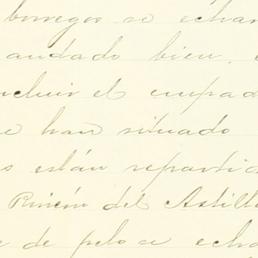 borregos se echan
andado bien.
cluir el empad
e han situado
s están repartid
Rincón del Astill
de pelo se echa